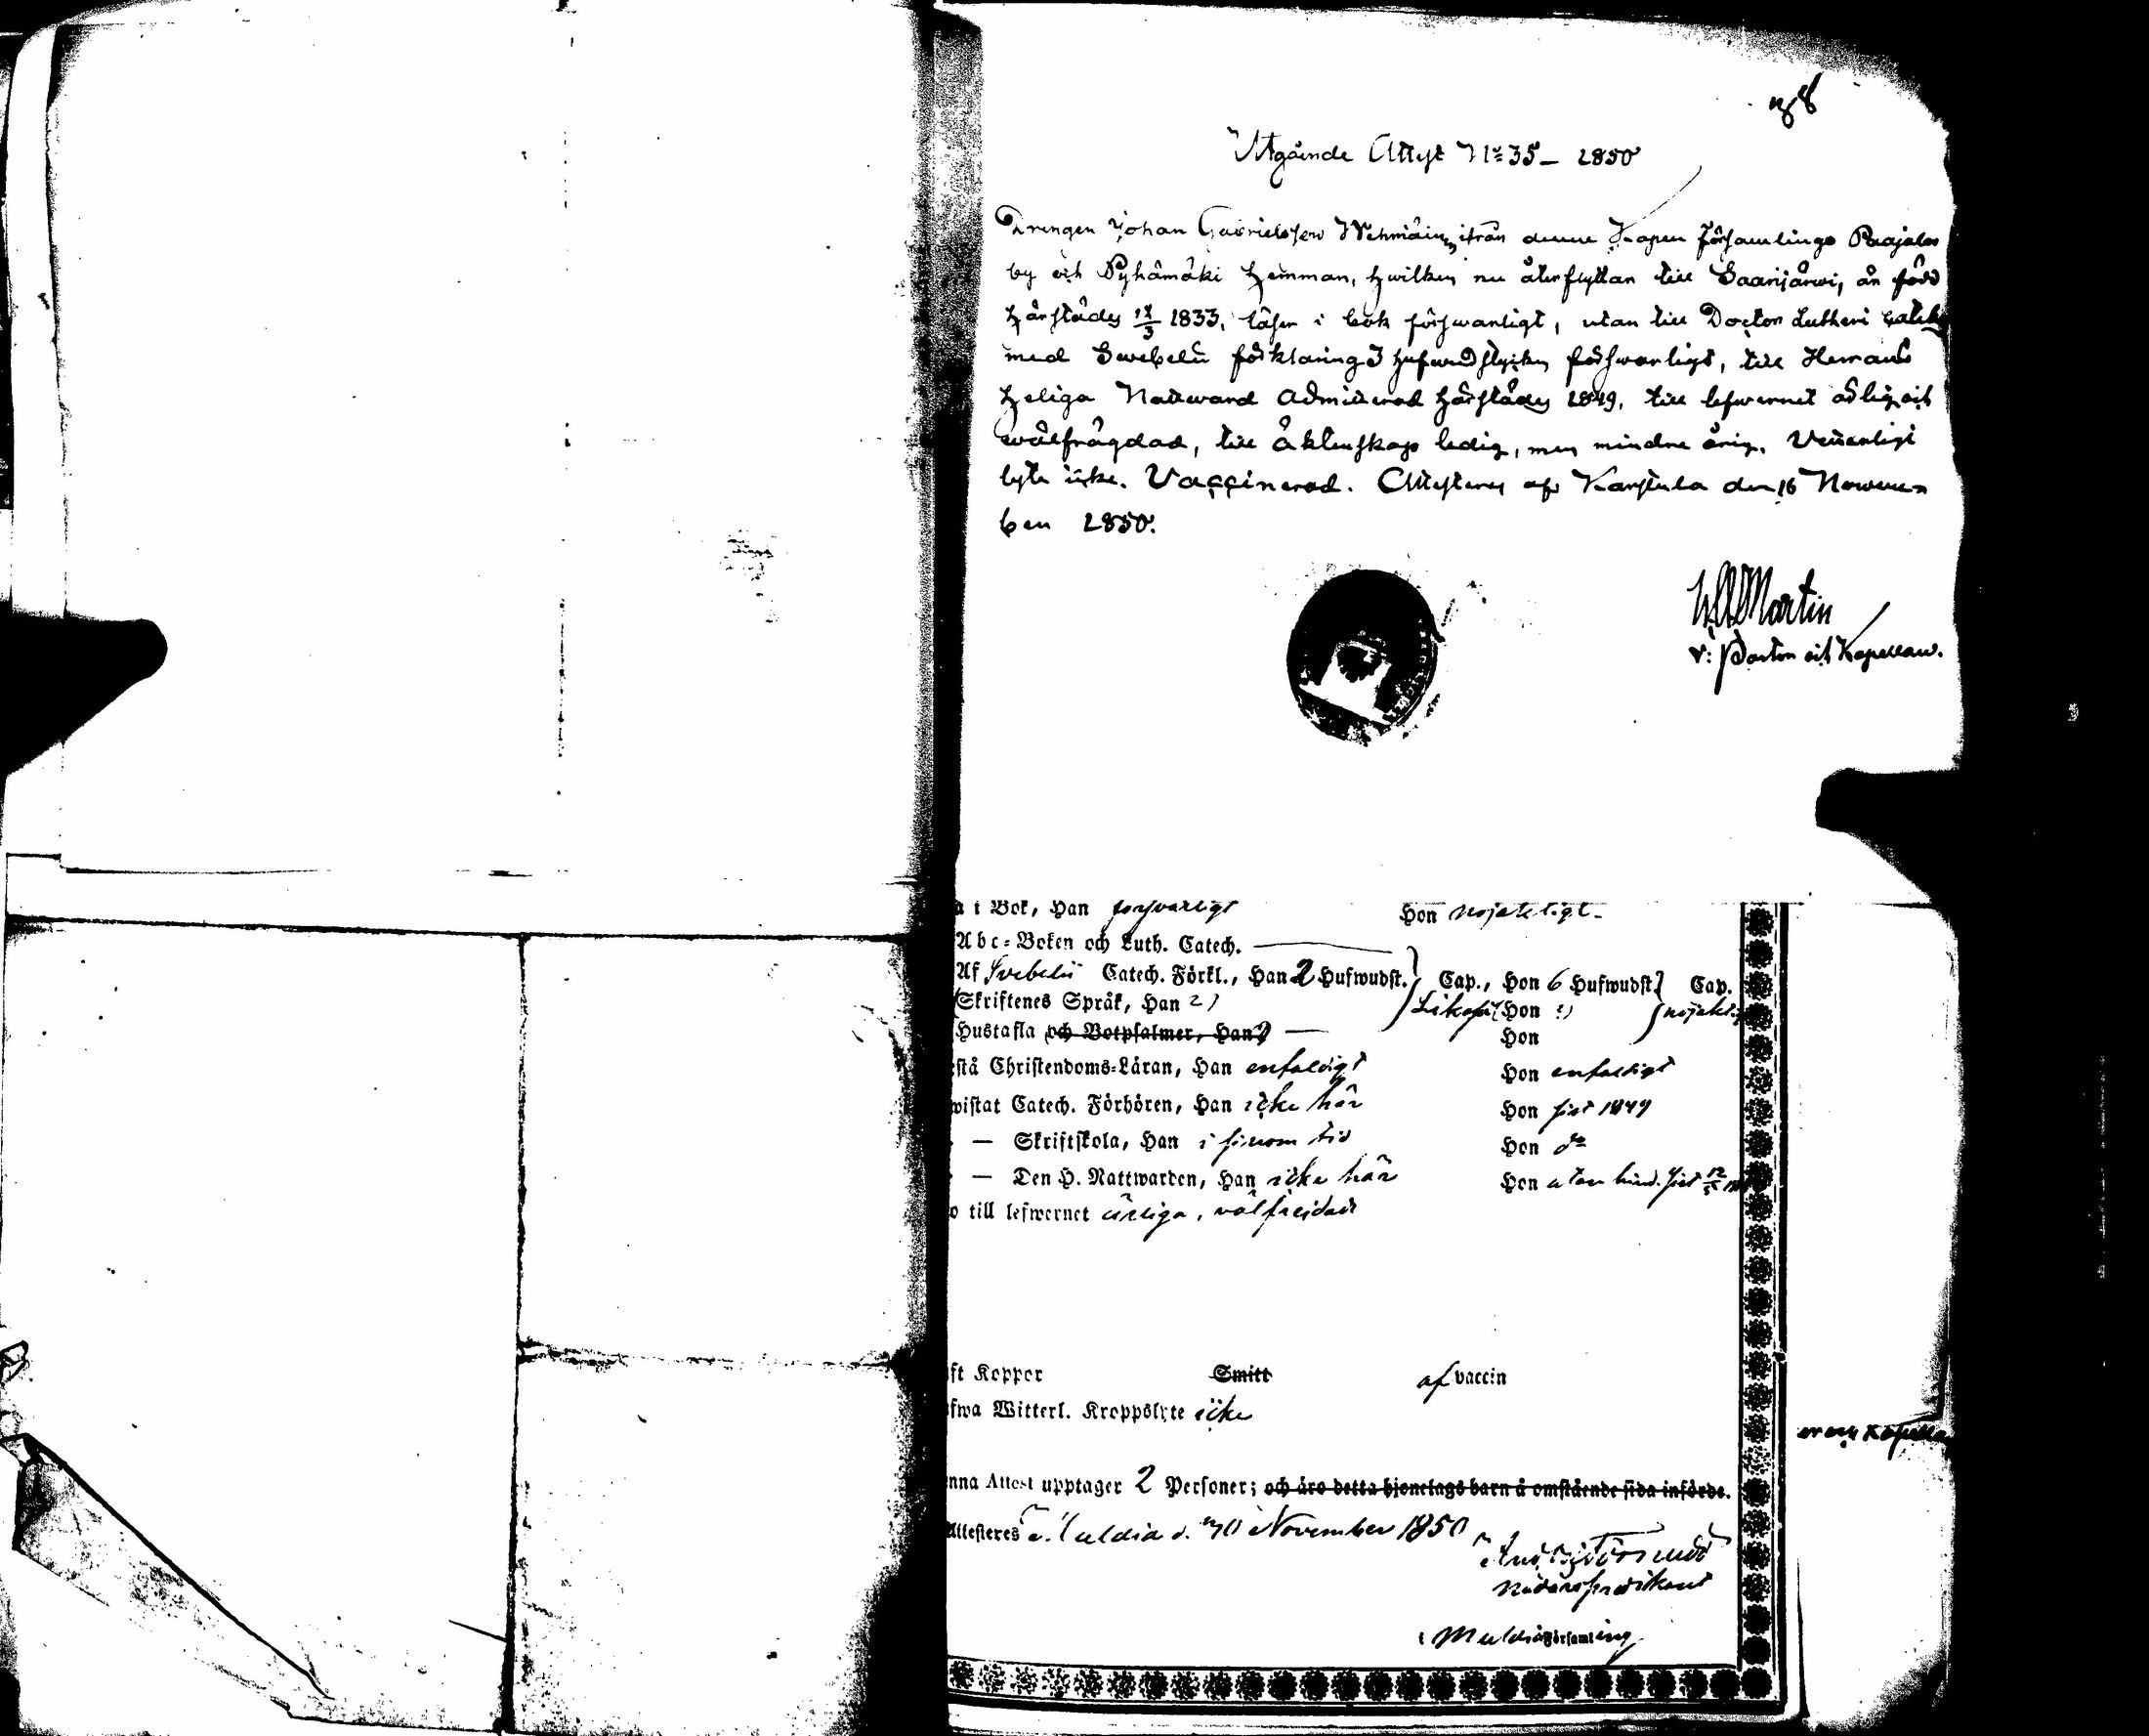 Utgående Attest No 35 – 1850
Drengen Johan Gabrielsson Wehmäin, ifrån denne Kapell församlings Paajalas
by och Pyhämäki hemman, hwilken nu återflyttar till Saarijärwi, är född
härstädes 18/3 1833, läser i bok förswarligt, utan till Doctor Lutheri Cateches
med Swebelii förklaring 3 hufwudstycken förswarligt, till Herrans
heliga Nattward admitterad härstädes 1849, till lefwernet ärlig och
wälfrägdad, till äktenskap ledig, men mindre årig. Vetterligt
lyte icke. Vaccinerad. Attesteras af Karstula den 16 Nowem-
ber 1850.
Martin
v: Pastor och Kapellan.
a i Bok, Han förswarligt Hon nöjaktigt.
Abc-Boken och Luth. Catech.
Af Svebelii Catech. Förkl., Han 2 Hufwudst. Cap., Hon 6 Hufwudst. Cap.
(Skriftenes Språk, Han 2) Likaså (Hon 2) nöjakti
Hustafla och Botpsalmer, Han 2 Hon
estå Christendoms-Läran, Han enfaldigt Hon enfaldigt
wistat Catech. Förhören, Han icke här Hon sist 1849
— Skriftskola, Han i sinom tid Hon do
— Den H. Nattwarden, Han icke här Hon utan hind. sist 12/5
o till lefwernet ärliga, välfrejdade
ft Koppor Smitt af vaccin
fwa Witterl. Kroppslyte icke
enna Attest upptager 2 Personer; och äro detta hjonelags barn å omstående sida införde.
Attesteres November 1850
Nådårspredikant
i Muldia Församling
och Kapella